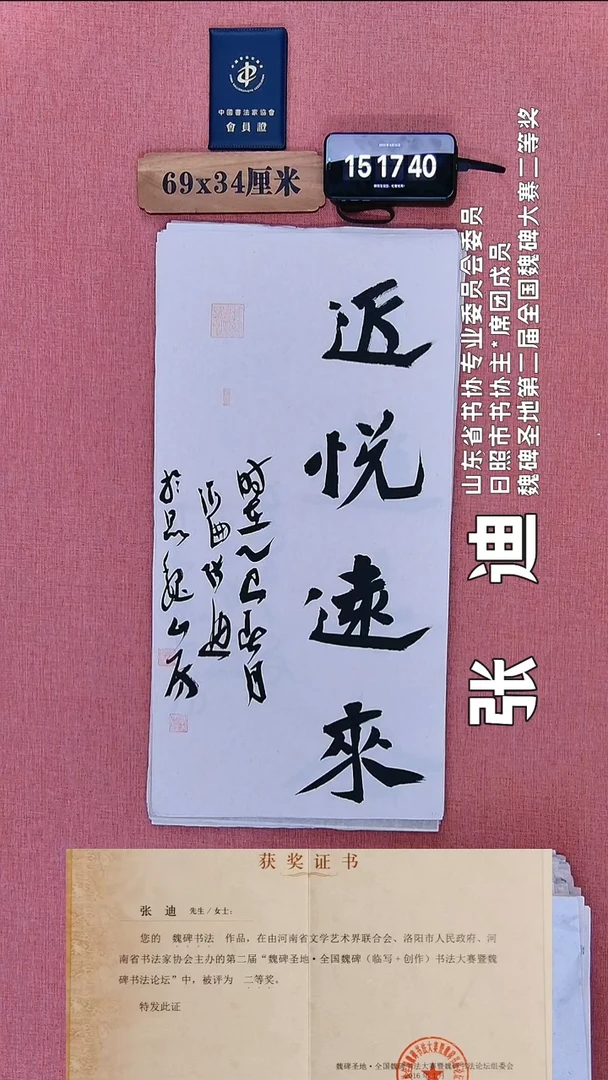 中國書法家協會
會員證
69x34厘米
15 17 40
近悦遠來
时在乙巳春月
张迪
於品魏山房
山东省书协专业委员会委员
日照市书协主*席团成员
魏碑圣地第二届全国魏碑大赛二等奖
张 迪
获奖证书
张 迪 先生/女士:
您的 魏碑书法 作品,在由河南省文学艺术界联合会、洛阳市人民政府、河
南省书法家协会主办的第二届“魏碑圣地·全国魏碑(临写+创作)书法大赛暨魏
碑书法论坛”中,被评为 二等奖。
特发此证
魏碑圣地·全国魏碑书法大赛暨魏碑书法论坛组委会